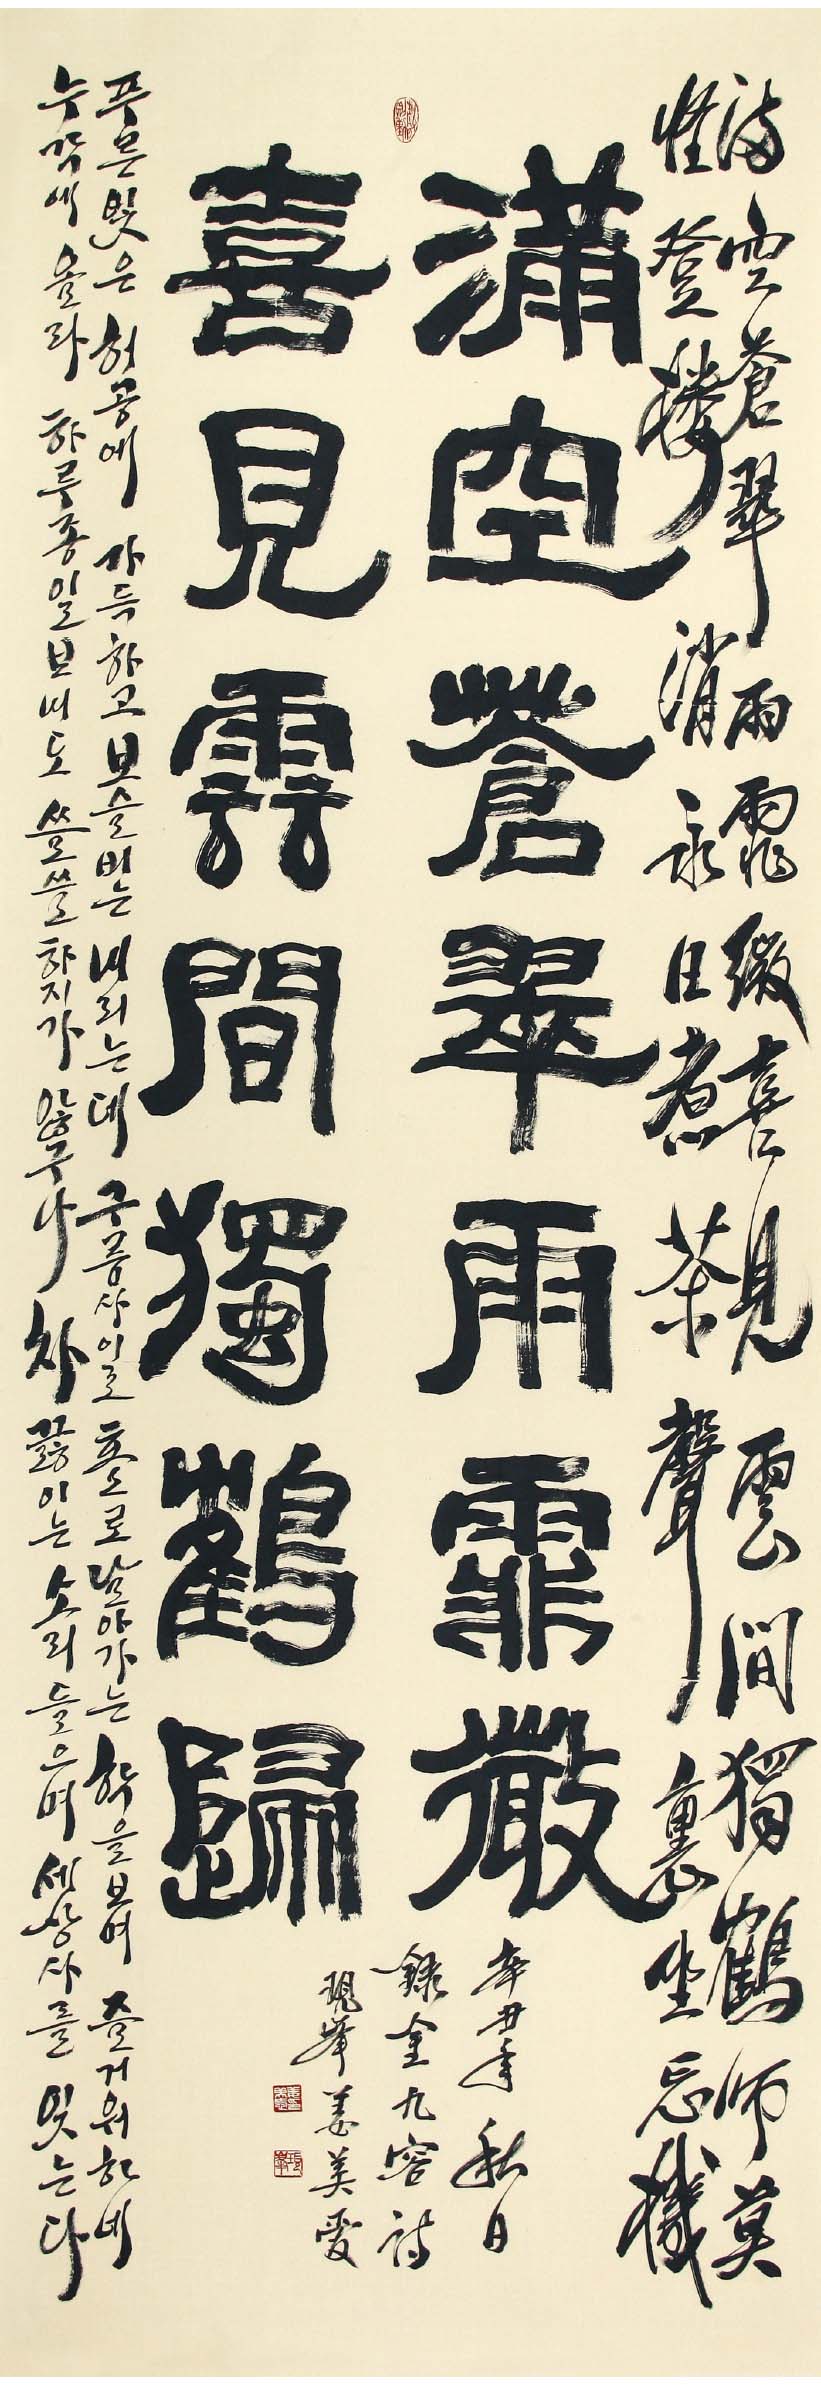 滿空蒼翠雨霏微喜見雲間獨鶴歸莫
怪登樓消永日煮茶聲裏坐忘機
滿空蒼翠雨霏微
喜見雲間獨鶴歸
辛丑年秋日
錄金九容詩
現峯姜美愛
푸른 빛은 허공에 가득하고 보슬비는 내리는데 구름사이로 홀로 날아가는 학을 보며 즐거워하네
누각에 올라 하루종일 보내도 쓸쓸하지가 않구나 차 끓이는 소리 들으며 세상사를 잊는다